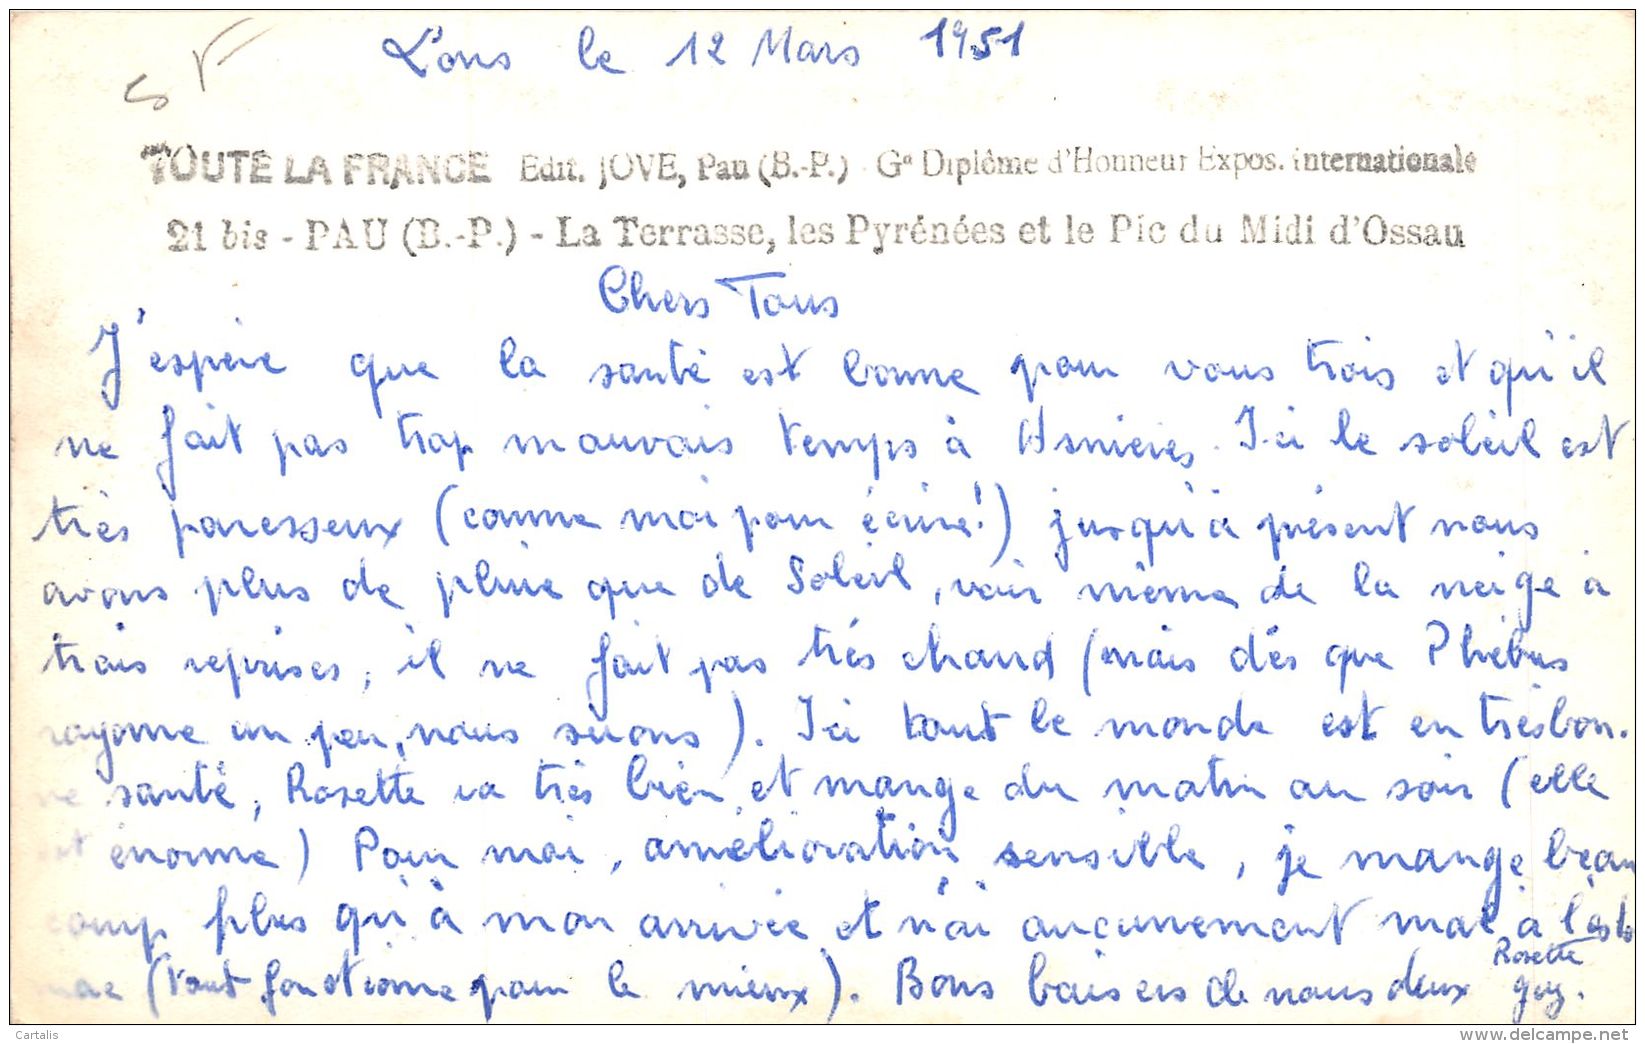 Lons le 12 Mars 1951
TOUTE LA FRANCE Edit. JOVE, Pau (B.-P.) Gd Diplôme d'Honneur Expos. internationale
21 bis - PAU (B.-P.) - La Terrasse, les Pyrénées et le Pic du Midi d'Ossau
Chers Tous
J'espère que la santé est bonne pour vous trois et qu'il
ne fait pas trop mauvais temps à Asnières. Ici le soleil est
très paresseux (comme moi pour écrire!) jusqu'à présent nous
avons plus de pluie que de Soleil, voir même de la neige à
trois reprises, il ne fait pas très chaud (mais dès que Phébus
rayonne un peu, nous suons). Ici tout le monde est en très bon.
ne santé, Rosette va très bien et mange du matin au soir (elle
est énorme) Pour moi, amélioration sensible, je mange beau
coup plus qu'à mon arrivée et n'ai aucunement mal à l'esto
mac (tout fonctionne pour le mieux). Bons baisers de nous deux
Rosette
Guy.
Cartalis
www.delcampe.net